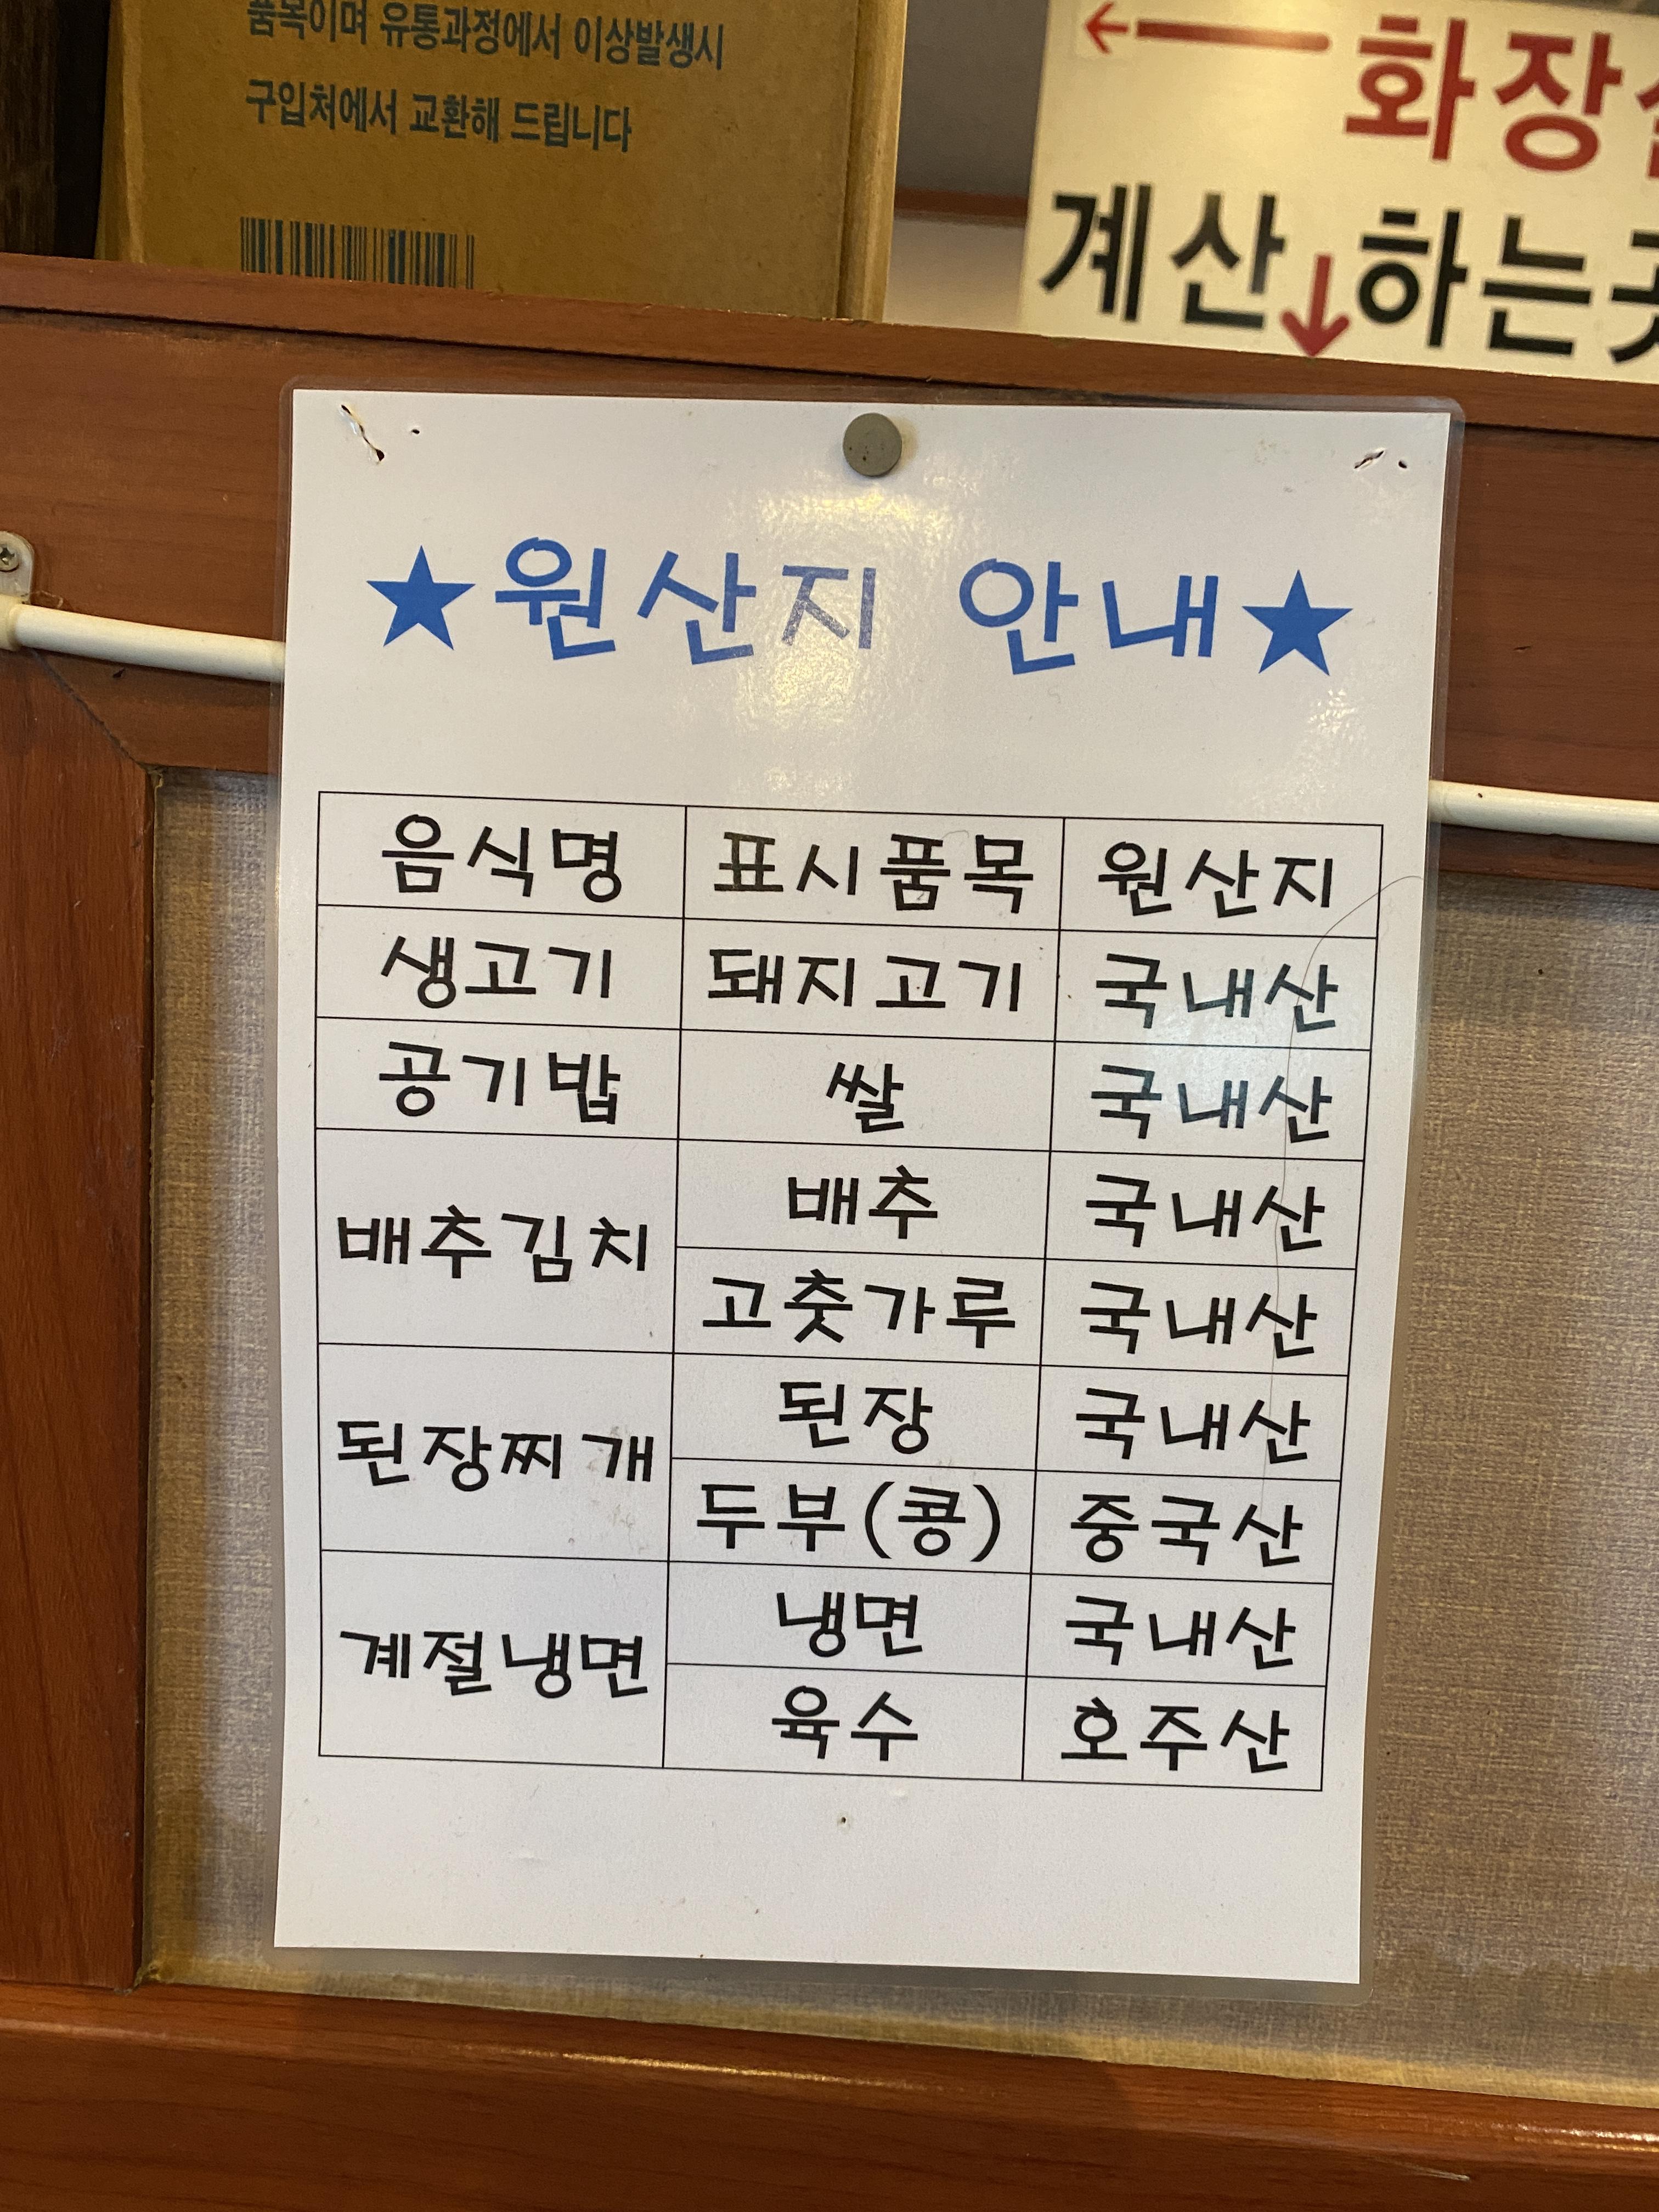 품목이며 유통과정에서 이상발생시
구입처에서 교환해 드립니다
← 화장
계산↓하는
★원산지 안내★
음식명 표시품목 원산지
생고기 돼지고기 국내산
공기밥 쌀 국내산
배추김치 배추 국내산
고춧가루 국내산
된장찌개 된장 국내산
두부(콩) 중국산
계절냉면 냉면 국내산
육수 호주산